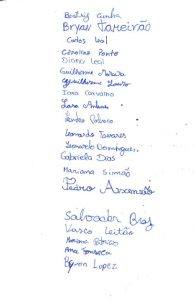 Beatriz Cunha
Bryan Tareirão
Carlos Leal
Carolina Ponte
Diana Leal
Guilherme
Guilherme
Iara Carvalho
Lara Antunes
Leonardo Tavares
Leonardo Domingues
Gabriela Dias
Mariana Simão
Pedro Ascensão
Salvador Braz
Vasco Leitão
Ana Fonseca
Byron Lopez